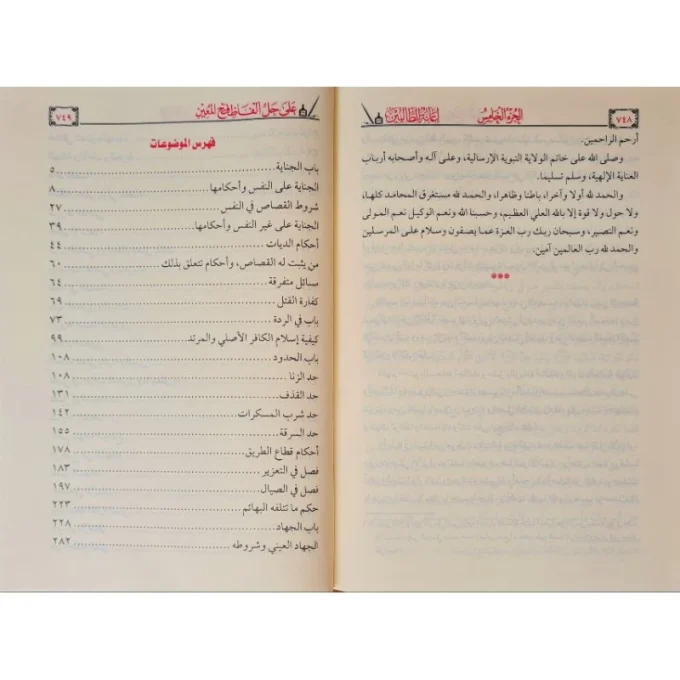 ٧٤٨
الجزء الخامس
إعانة الطالبين
أرحم الراحمين.
وصلى الله على خاتم الولاية النبوية الإرسالية، وعلى آله وأصحابه أرباب
العناية الإلهية، وسلم تسليما.
والحمد لله أولا وآخرا، باطنا وظاهرا، والحمد لله مستغرق المحامد كلها،
ولا حول ولا قوة إلا بالله العلي العظيم، وحسبنا الله ونعم الوكيل نعم المولى
ونعم النصير، وسبحان ربك رب العزة عما يصفون وسلام على المرسلين
والحمد لله رب العالمين آمين.
***
على حل ألفاظ فتح المعين
٧٤٩
فهرس الموضوعات
باب الجناية ٥
الجناية على النفس وأحكامها ٨
شروط القصاص في النفس ٢٧
الجناية على غير النفس وأحكامها ٣٩
أحكام الديات ٤٤
من يثبت له القصاص، وأحكام تتعلق بذلك ٦٠
مسائل متفرقة ٦٤
كفارة القتل ٦٩
باب في الردة ٧٣
كيفية إسلام الكافر الأصلي والمرتد ٩٩
باب الحدود ١٠٨
حد الزنا ١٠٨
حد القذف ١٣١
حد شرب المسكرات ١٤٢
حد السرقة ١٥٥
أحكام قطاع الطريق ١٧٨
فصل في التعزير ١٨٣
فصل في الصيال ١٩٧
حكم ما تتلفه البهائم ٢٢٣
باب الجهاد ٢٢٨
الجهاد العيني وشروطه ٢٨٢